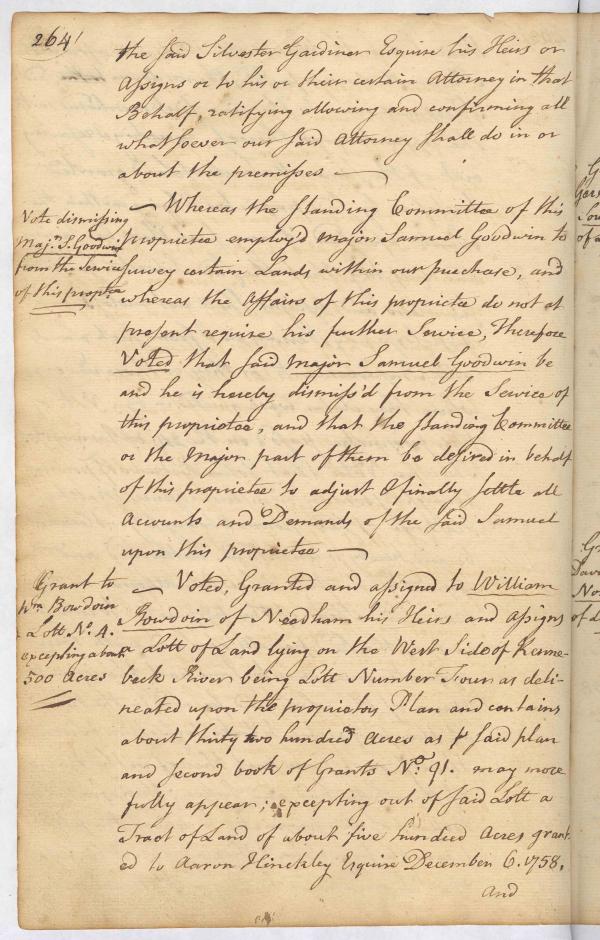 264
the said Silvester Gardiner Esquire his Heirs or
Assigns or to his or their certain Attorney in that
Behalf, ratifying allowing and confirming all
whatsoever our said Attorney shall do in or
about the premisses —
Vote dismissing
Majr. S. Goodwin
from the Service
of this proptee
— Whereas the standing Committee of this
proprietee employ'd Major Samuel Goodwin to
survey certain Lands within our purchase, and
whereas the Affairs of this proprietee do not at
present require his further Service, Therefore
Voted that said Major Samuel Goodwin be
and he is hereby dismiss'd from the Service of
this proprietee, and that the standing Committee
or the Major part of them be desired in behalf
of this proprietee to adjust & finally settle all
Accounts and Demands of the said Samuel
upon this proprietee —
Grant to
Wm Bowdoin
Lott No. 4.
excepting about
500 Acres
— Voted, Granted and assigned to William
Bowdoin of Needham his Heirs and Assigns
a Lott of Land lying on the West Side of Kenne-
beck River being Lott Number Four as deli-
neated upon the proprietors Plan and contains
about thirty two hundred Acres as pr said plan
and second book of Grants No. 91. may more
fully appear; excepting out of said Lott a
Tract of Land of about five hundred Acres grant
ed to Aaron Hinckley Esquire December 6. 1758,
and